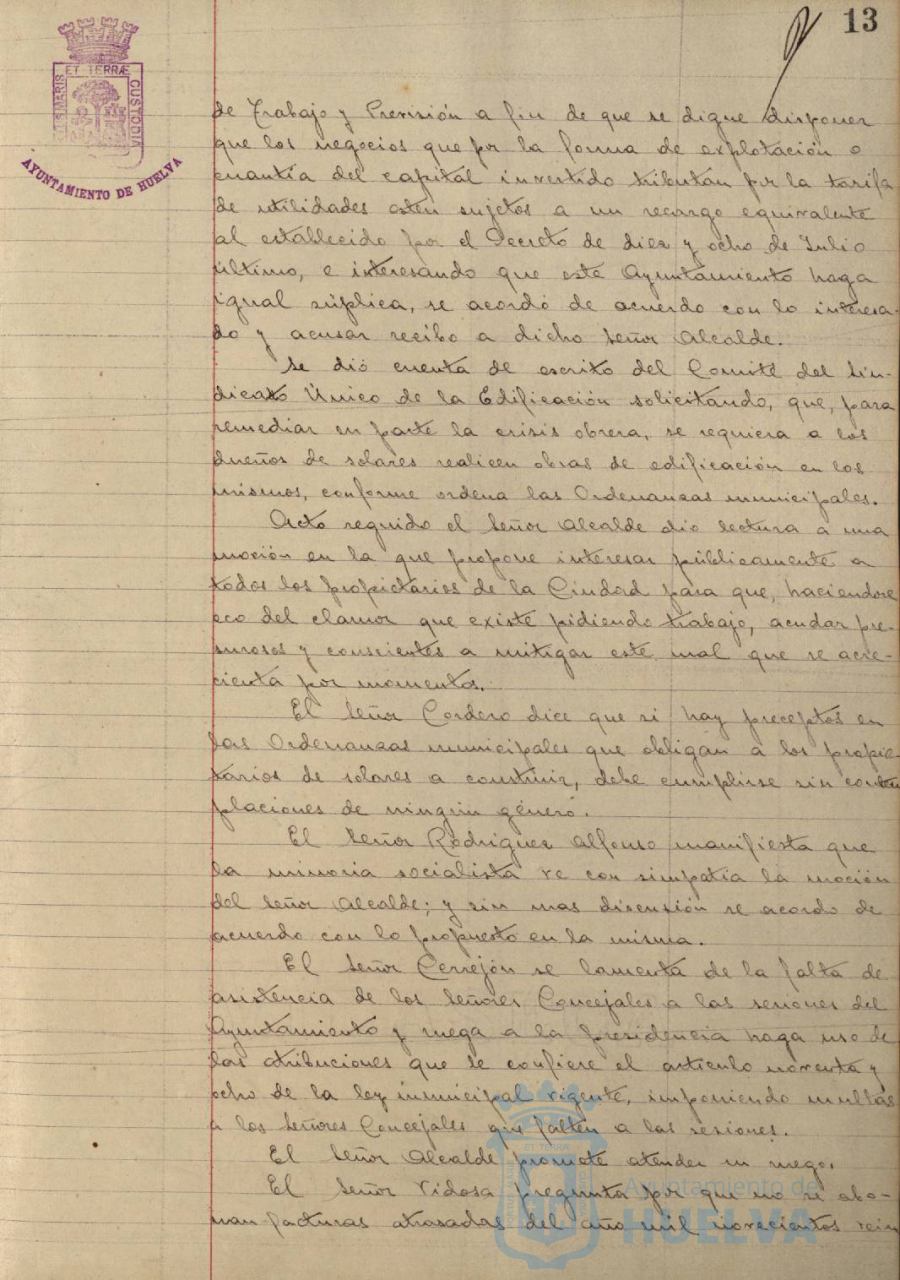 13
PORTUS MARIS ET TERRÆ CUSTODIA
AYUNTAMIENTO DE HUELVA
de Trabajo y Previsión a fin de que se digne disponer
que los negocios que por la forma de explotación o
cuantía del capital invertido tributan por la tarifa
de utilidades esten sujetos a un recargo equivalente
al establecido por el Decreto de diez y ocho de Julio
último, e interesando que este Ayuntamiento haga
igual súplica, se acordó de acuerdo con lo interesa-
do y acusar recibo a dicho Señor Alcalde.
Se dió cuenta de escrito del Comité del Sin-
dicato Único de la Edificación solicitando, que, para
remediar en parte la crisis obrera, se requiera a los
dueños de solares realicen obras de edificación en los
mismos, conforme ordena las Ordenanzas municipales.
Acto seguido el Señor Alcalde dio lectura a una
moción en la que propone interesar públicamente a
todos los propietarios de la Ciudad para que, haciendose
eco del clamor que existe pidiendo trabajo, acudan pre-
surosos y conscientes a mitigar este mal que se acre-
cienta por momentos.
El Señor Cordero dice que si hay preceptos en
las Ordenanzas municipales que obligan a los propie-
tarios de solares a construir, debe cumplirse sin contem
placiones de ningún género.
El Señor Rodriguez Alfonso manifiesta que
la minoria socialista ve con simpatía la moción
del Señor Alcalde; y sin mas discusión se acordo de
acuerdo con lo propuesto en la misma.
El Señor Cerrejón se lamenta de la falta de
asistencia de los Señores Concejales a las sesiones del
Ayuntamiento y ruega a la Presidencia haga uso de
las atribuciones que le confiere el articulo noventa y
ocho de la ley municipal vigente, imponiendo multas
a los Señores Concejales que falten a las sesiones.
El Señor Alcalde promete atender su ruego.
El Señor Vidosa pregunta por que no se abo-
nan facturas atrasadas del año mil novecientos vein
Ayuntamiento de
HUELVA